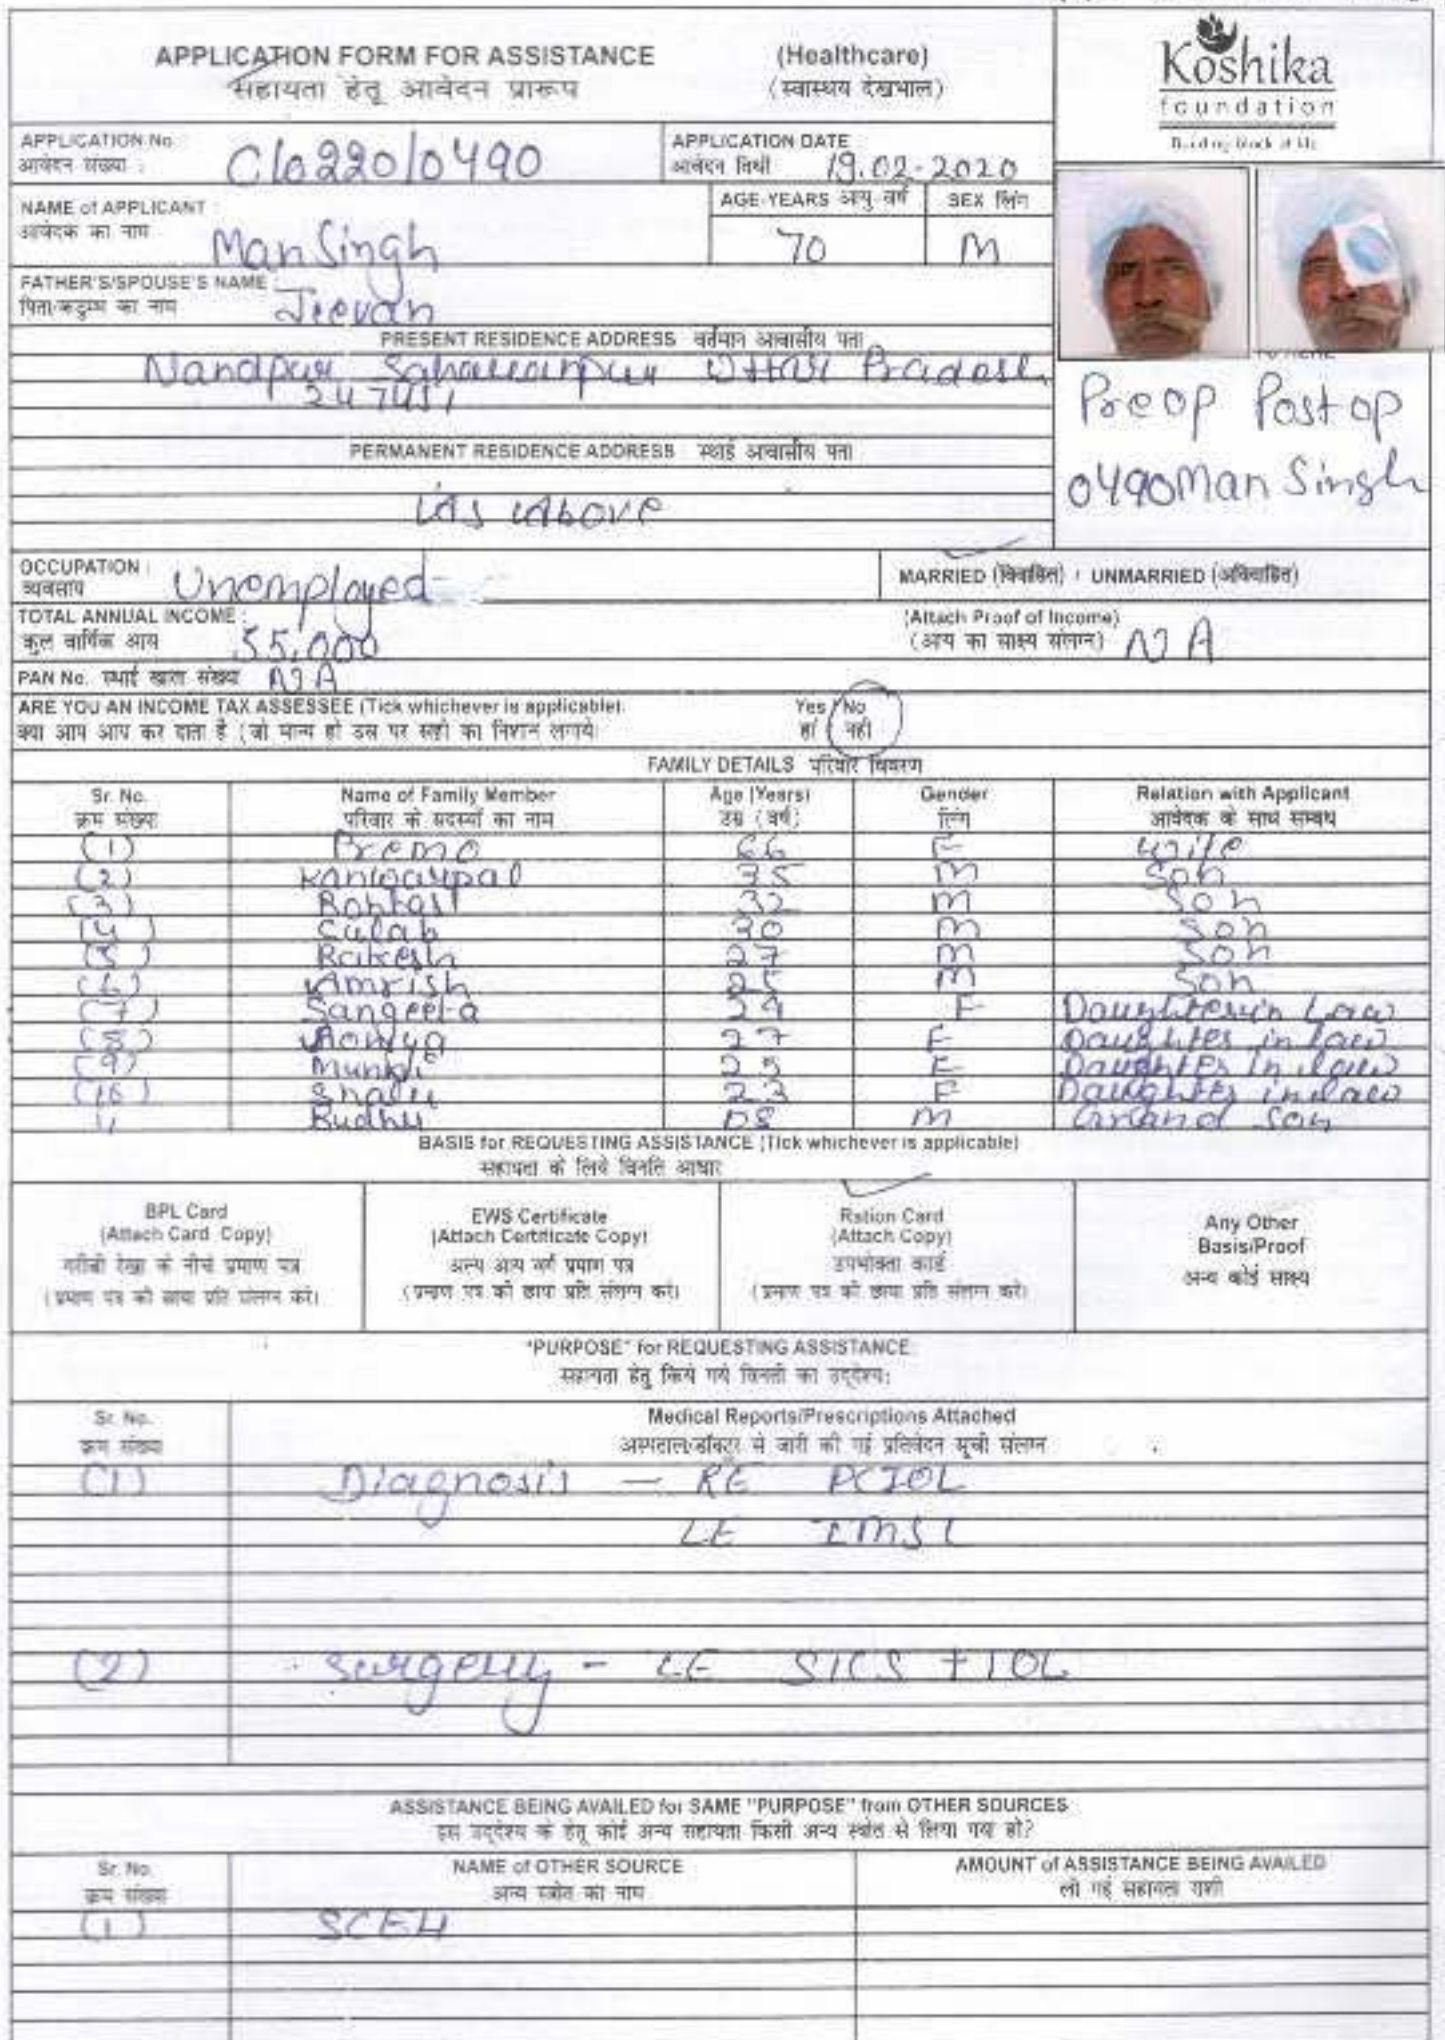 APPLICATION FORM FOR ASSISTANCE (Healthcare)
सहायता हेतू आवेदन प्रारूप (स्वास्थय देखभाल)
Koshika
foundation
APPLICATION No.
आवेदन संख्या :
APPLICATION DATE
आवेदन तिथी 19.02-2020
NAME of APPLICANT :
आवेदक का नाम Man Singh
AGE-YEARS आयु-वर्ष 70
SEX लिंग M
FATHER'S/SPOUSE'S NAME :
पिता/कटुम्ब का नाम Jeevan
PRESENT RESIDENCE ADDRESS वर्तमान आवासीय पता
Nandpur Saharanpur Uttar Pradesh
PERMANENT RESIDENCE ADDRESS स्थाई आवासीय पता
As Above
Preop Postop
0490 Man Singh
OCCUPATION :
व्यवसाय Unemployed
MARRIED (विवाहित) / UNMARRIED (अविवाहित)
TOTAL ANNUAL INCOME :
कुल वार्षिक आय 55,000
(Attach Proof of Income)
(आय का साक्ष्य संलग्न) NA
PAN No. स्थाई खाता संख्या NA
ARE YOU AN INCOME TAX ASSESSEE (Tick whichever is applicable): Yes / No
क्या आप आय कर दाता है (जो मान्य हो उस पर सही का निशान लगाये) हां / नही
FAMILY DETAILS परिवार विवरण
Sr. No. Name of Family Member Age (Years) Gender Relation with Applicant
क्रम संख्या परिवार के सदस्यों का नाम उम्र (वर्ष) लिंग आवेदक के साथ सम्बंध
(1) Premo 66 F wife
(2) 35 M Son
(3) 32 M Son
(4) Gulab 30 M Son
(5) Rakesh 27 M Son
(6) Amrish 25 M Son
(7) Sangeeta 29 F Daughter in Law
(8) 27 F Daughter in law
(9) F Daughter in law
(10) Shalu 23 F Daughter in law
Budhu 08 M Grand Son
BASIS for REQUESTING ASSISTANCE (Tick whichever is applicable)
सहायता के लिये विनति आधार
BPL Card
(Attach Card Copy)
गरीबी रेखा के नीचे प्रमाण पत्र
(प्रमाण पत्र की छाया प्रति संलग्न करे)
EWS Certificate
(Attach Certificate Copy)
अन्य आय वर्ग प्रमाण पत्र
(प्रमाण पत्र की छाया प्रति संलग्न करे)
Ration Card
(Attach Copy)
उपभोक्ता कार्ड
(प्रमाण पत्र की छाया प्रति संलग्न करे)
Any Other
Basis/Proof
अन्य कोई साक्ष्य
"PURPOSE" for REQUESTING ASSISTANCE:
सहायता हेतु किये गये विनती का उद्देश्य:
Sr. No. Medical Reports/Prescriptions Attached
क्रम संख्या अस्पताल/डॉक्टर से जारी की गई प्रतिवेदन सूची संलग्न
(1) Diagnosis - RE PCIOL
LE
(2) Surgery - LE SICS + IOL
ASSISTANCE BEING AVAILED for SAME "PURPOSE" from OTHER SOURCES
इस उद्देश्य के हेतू कोई अन्य सहायता किसी अन्य स्त्रोत से लिया गया हो?
Sr. No. NAME of OTHER SOURCE AMOUNT of ASSISTANCE BEING AVAILED
क्रम संख्या अन्य स्त्रोत का नाम ली गई सहायता राशी
(1) SCEH